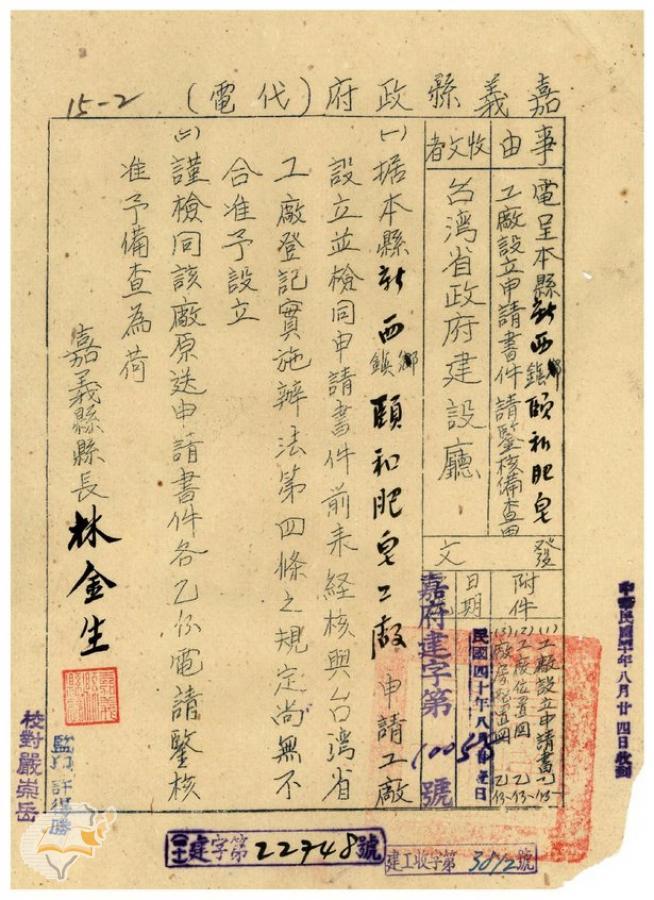 嘉義縣政府(代電)
15-2
事由
電呈本縣新西鄉鎮頤和肥皂
工廠設立申請書件請鑒核備查由
收文者
台湾省政府建設廳
發文
附件
(1)工廠設立申請書乙份
(2)工廠位置図 乙份
(3)廠房配置図 乙份
日期
民國四十年八月
嘉府建字第10055號
中華民國四十年八月廿四日收到
(一)据本縣新西鄉鎮頤和肥皂工廠申請工廠
設立並檢同申請書件前来経核與台湾省
工廠登記實施辦法第四條之規定尚無不
合准予設立
(二)謹檢同該廠原送申請書件各乙份電請鑒核
准予備查為荷
嘉義縣縣長林金生
監印許得勝
校對嚴崇岳
(四十)建字第22748號
建工收字第3812號